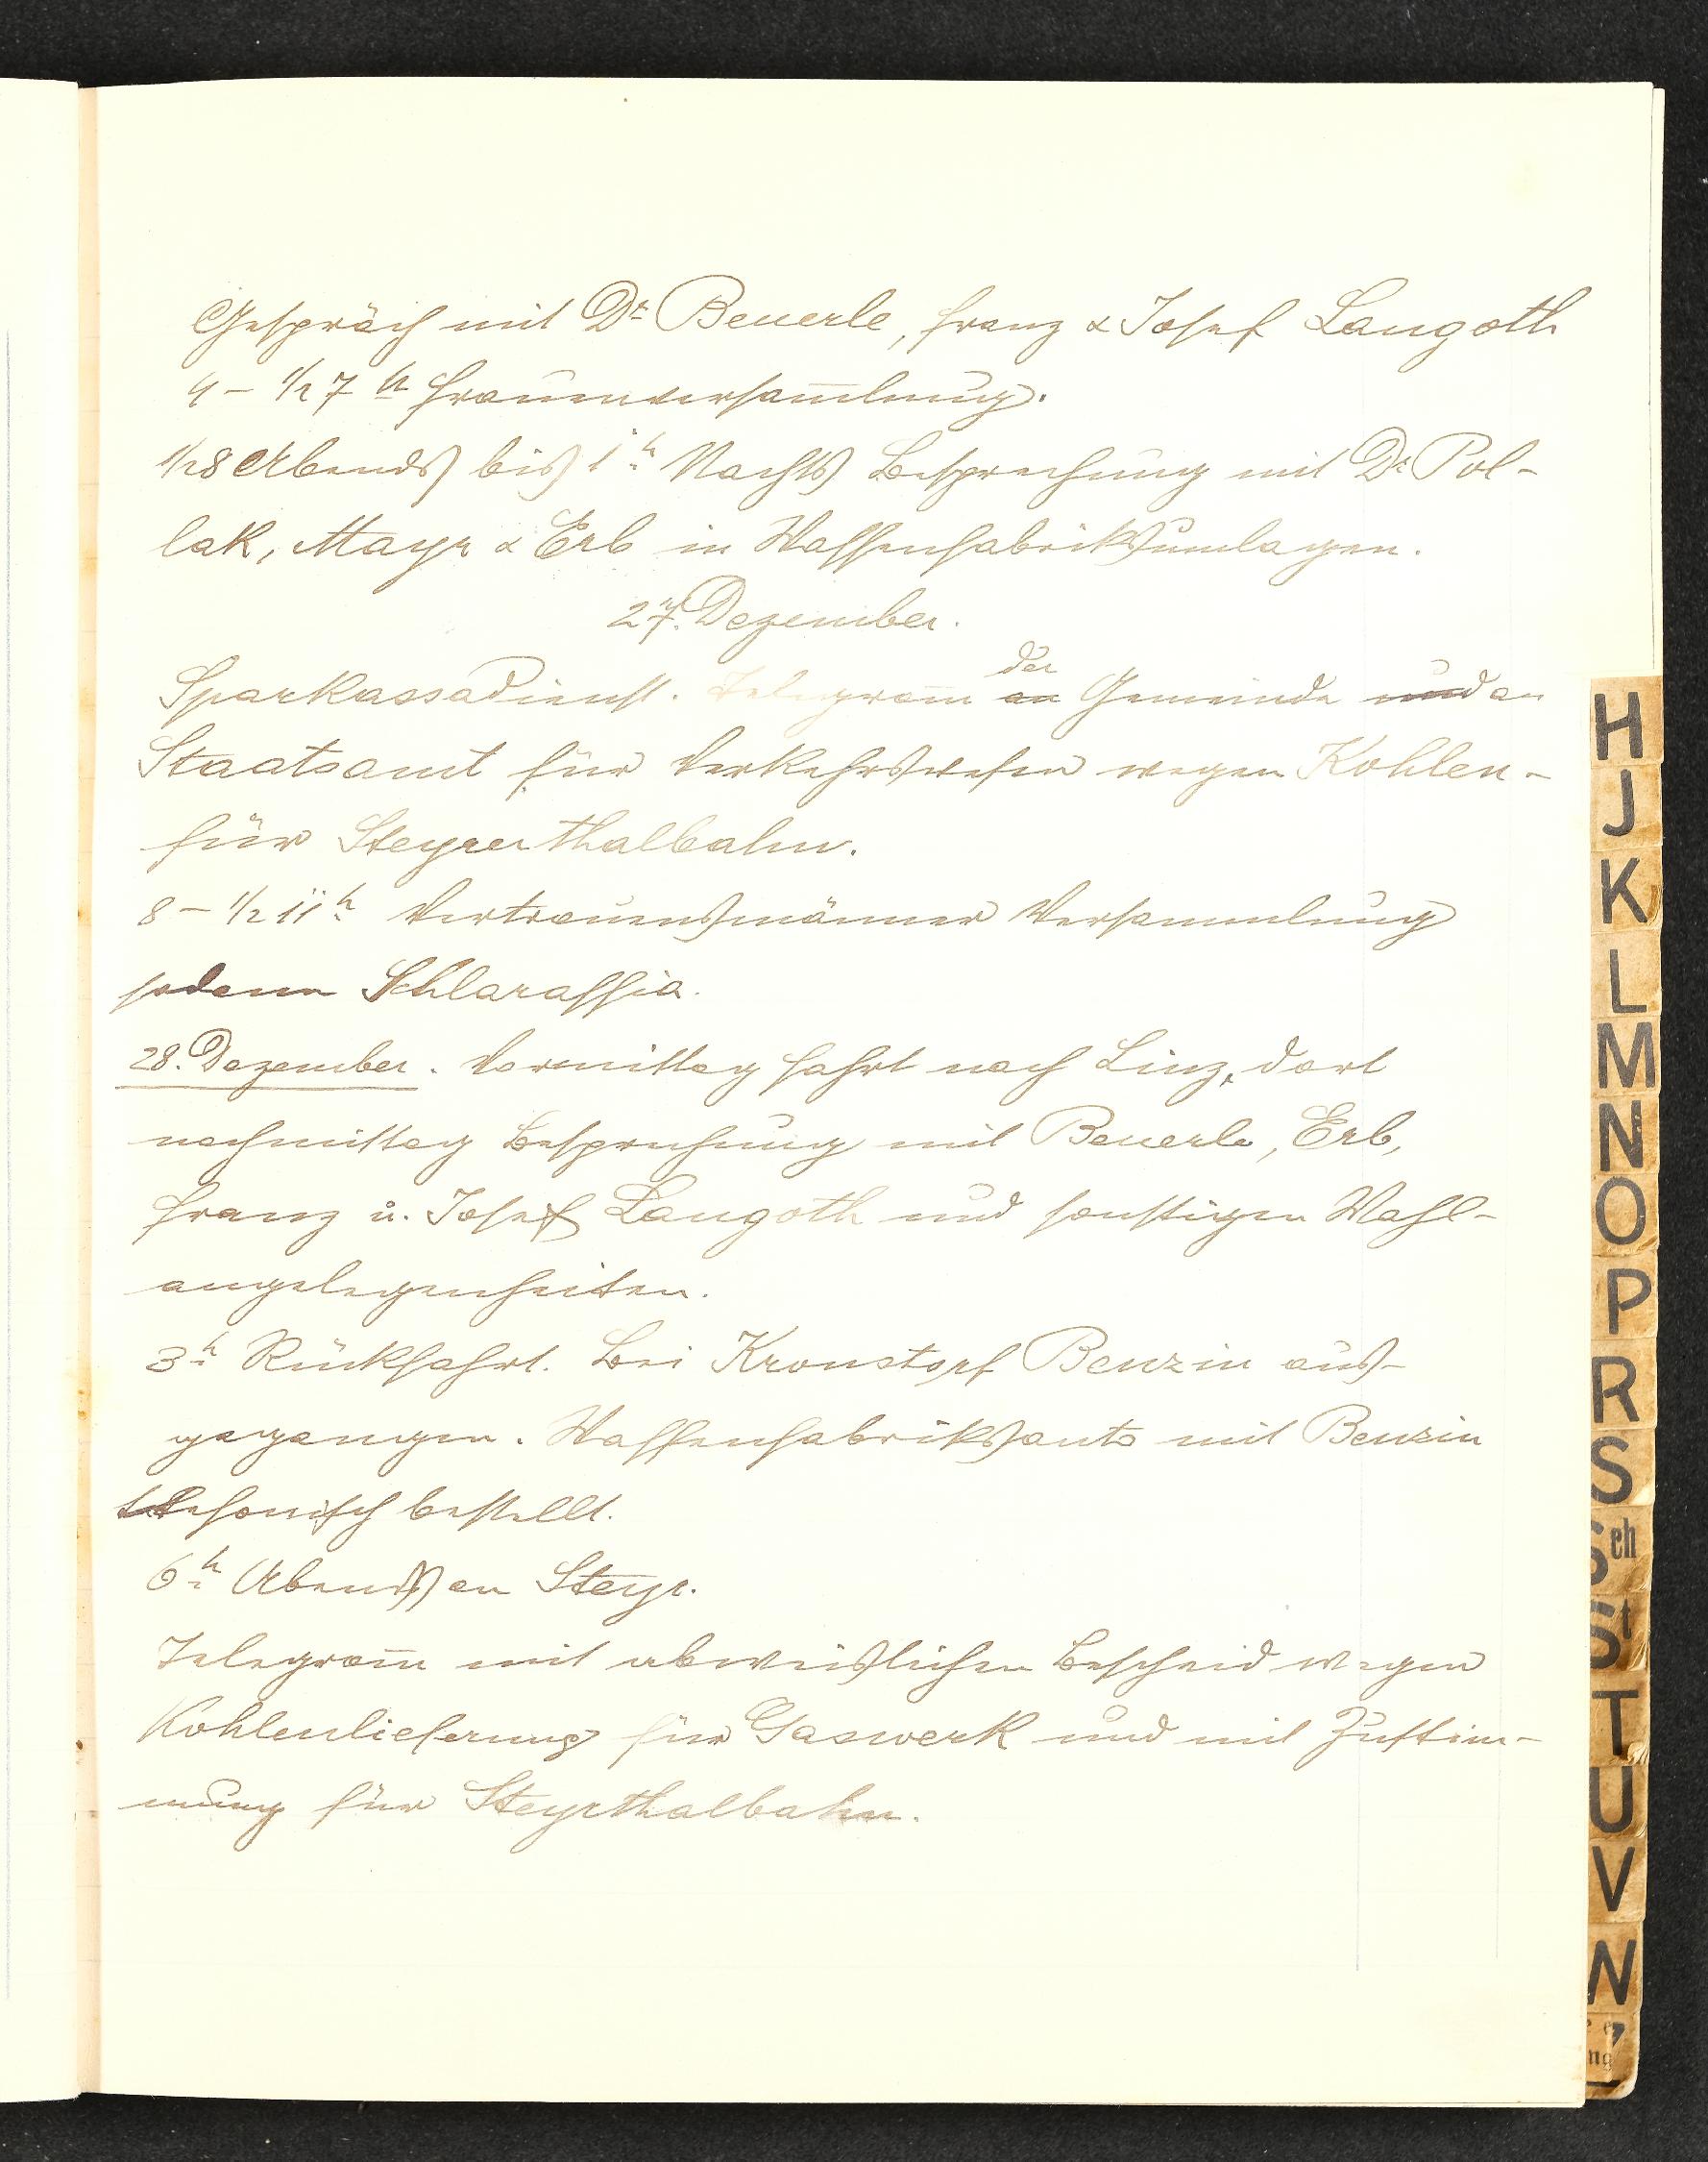 Gespräch mit Dr Beuerle, Franz & Josef Langoth
4 – 1/2 7 h Frauenversam̅lung.
1/2 8 Abends bis 1 h Nachts Besprechung mit Dr Pol-
lak, Mayr & Erb in Waffenfabriksumlagen.
27. Dezember.
Sparkassadienst. Telegram̅ an der Gemeinde und an
Staatsamt für Verkehrswesen wegen Kohlen-
für Steyrerthalbahn.
8 – 1/2 11 h Vertrauensmänner Versammlung
sodann Schlaraffia.
28. Dezember. Vormittag Fahrt nach Linz, dort
nachmittag Besprechung mit Beuerle, Erb,
Franz u. Josef Langoth und sonstigen Wahl-
angelegenheiten.
3 h Rückfahrt. Bei Kronstorf Benzin aus-
gegangen. Waffenfabriksauto mit Benzin
telefonisch bestellt.
6 h Abends an Steyr.
Telegram̅ mit abweislichen Bescheid wegen
Kohlenlieferung für Gaswerk und mit Zustim-
mung für Steyrthalbahn.
H
J
K
L
M
N
O
P
R
S
Sch
St
T
U
V
W